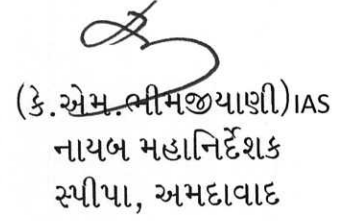 (કે.એમ.ભીમજીયાણી)IAS
નાયબ મહાનિર્દેશક
સ્પીપા, અમદાવાદ